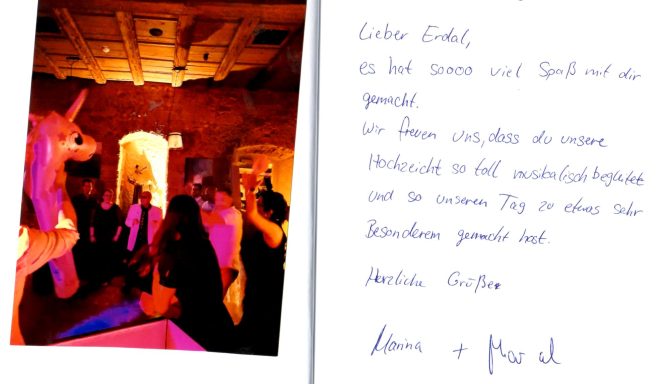 Lieber Erdal,
es hat soooo viel Spaß mit dir
gemacht.
Wir freuen uns, dass du unsere
Hochzeicht so toll musikalisch begleitet
und so unseren Tag zu etwas sehr
Besonderem gemacht hast.
Herzliche Grüße
Marina + Marcel